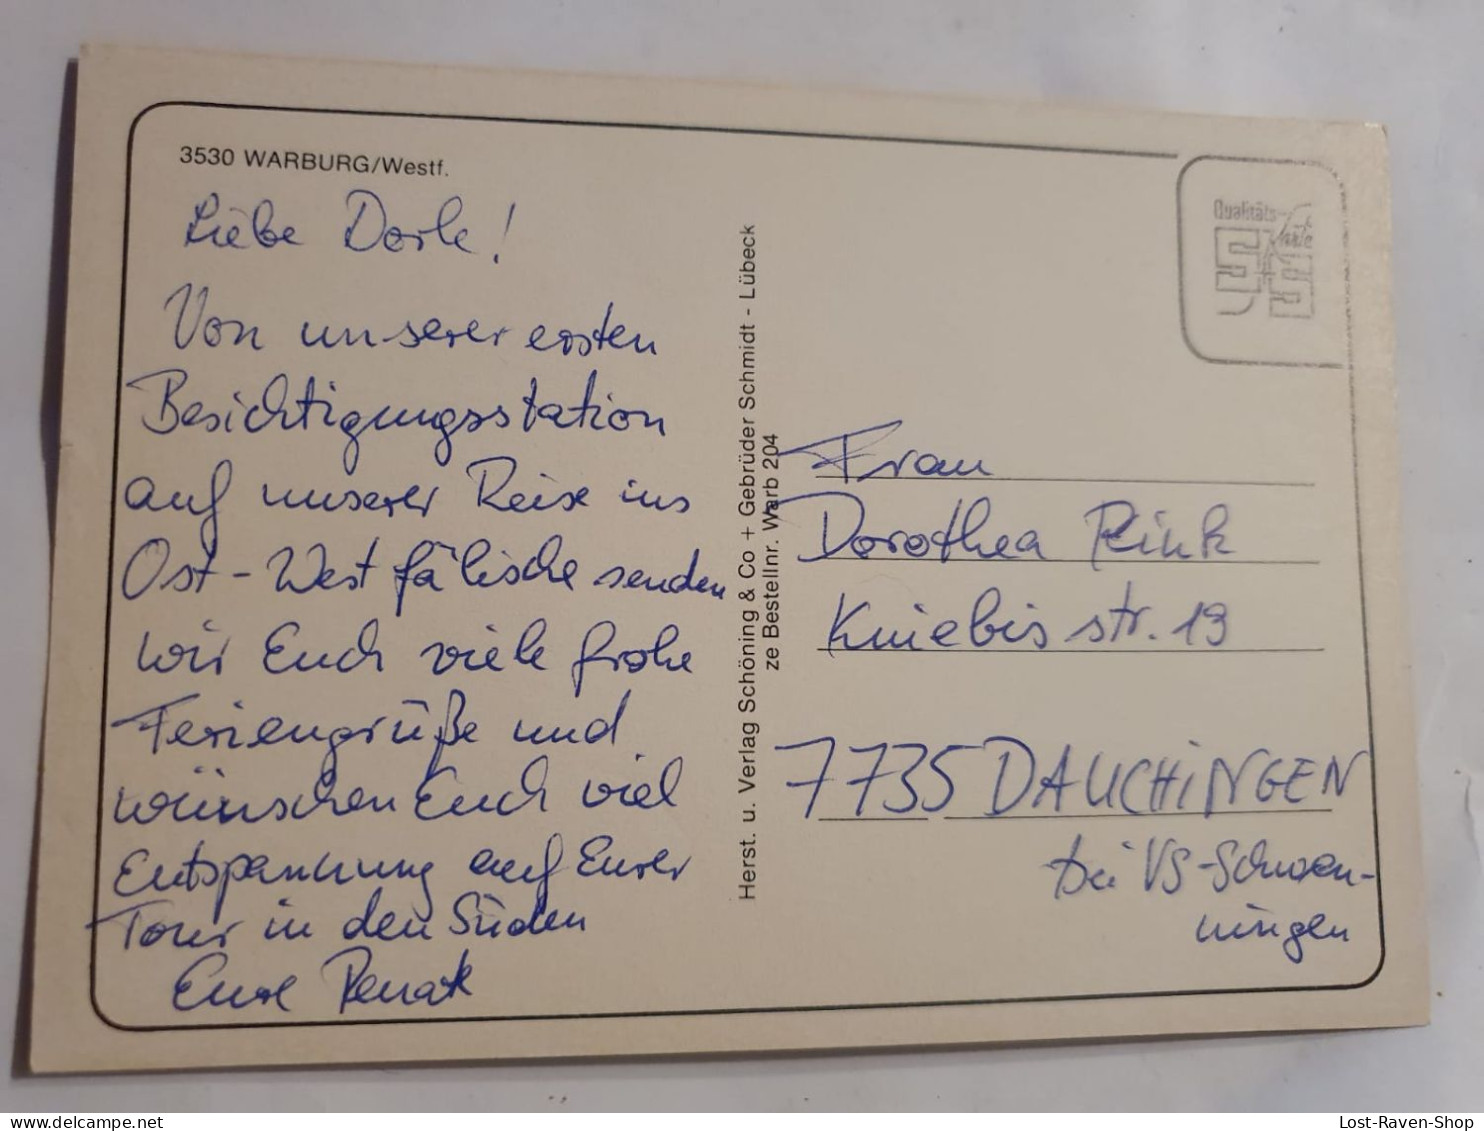 3530 WARBURG/Westf.
Liebe Dorle!
Von unserer ersten
Besichtigungsstation
auf unserer Reise ins
Ost-Westfälische senden
wir Euch viele frohe
Feriengrüße und
wünschen Euch viel
Entspannung auf Eurer
Tour in den Süden
Eure Renate
Herst. u. Verlag Schöning & Co + Gebrüder Schmidt - Lübeck
ze Bestellnr. Warb 204
Qualitäts-
Karte
Frau
Dorothea Rink
Kniebisstr. 19
7735 DAUCHINGEN
bei VS-Schwen-
ningen
Lost-Raven-Shop